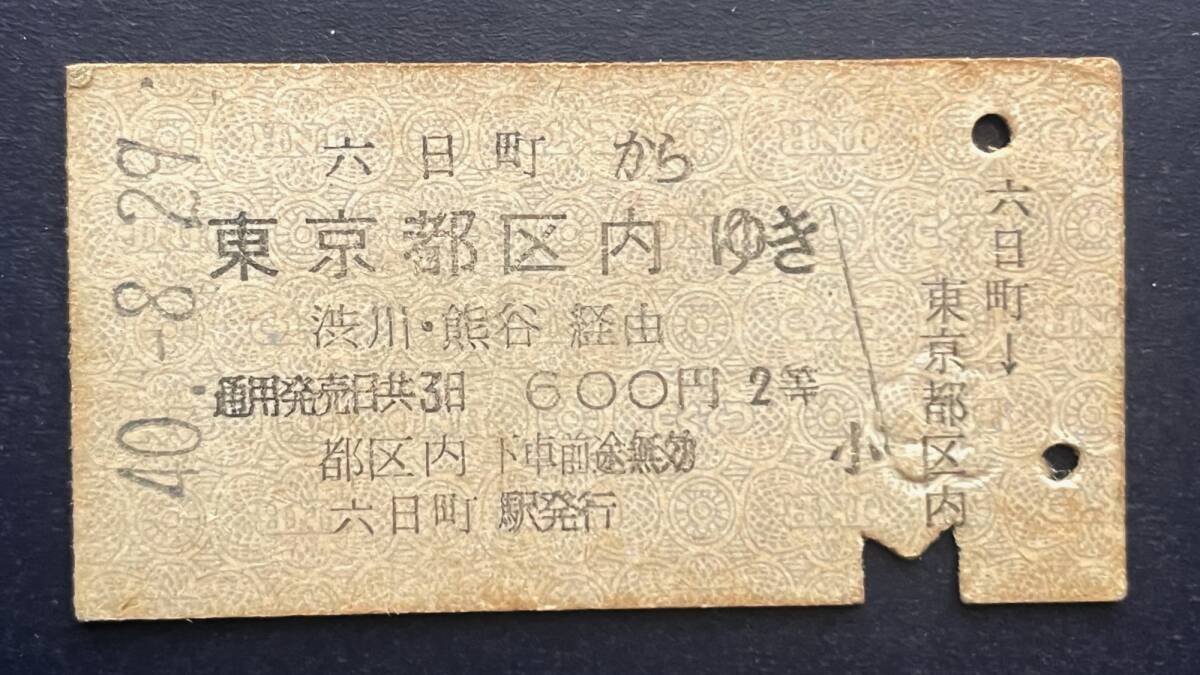 40.-8.29.
六日町 から
東京都区内 ゆき
渋川・熊谷 経由
通用発売日共3日 600円 2等
都区内 下車前途無効
六日町 駅発行
小
六日町→
東京都区内